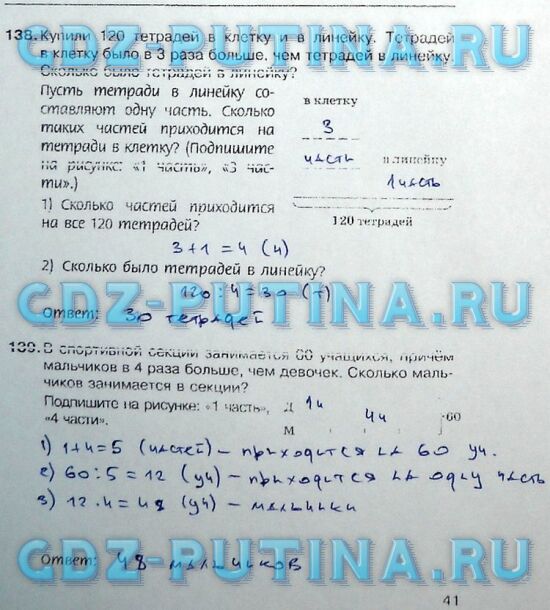 138. Купили 120 тетрадей в клетку и в линейку. Тетрадей
в клетку было в 3 раза больше, чем тетрадей в линейку.
Сколько было тетрадей в линейку?
Пусть тетради в линейку со-
ставляют одну часть. Сколько
таких частей приходится на
тетради в клетку? (Подпишите
на рисунке: «1 часть», «3 час-
ти».)
в клетку
3
часть
в линейку
1 часть
120 тетрадей
1) Сколько частей приходится
на все 120 тетрадей?
3+1=4 (ч)
2) Сколько было тетрадей в линейку?
120:4=30 (т)
Ответ: 30 тетрадей
GDZ-PUTINA.RU
GDZ-PUTINA.RU
GDZ-PUTINA.RU
GDZ-PUTINA.RU
139. В спортивной секции занимается 60 учащихся, причём
мальчиков в 4 раза больше, чем девочек. Сколько маль-
чиков занимается в секции?
Подпишите на рисунке: «1 часть»,
«4 части».
Д 1ч
4ч
М
60
1) 1+4=5 (частей) – приходится на 60 уч.
2) 60:5=12 (уч) – приходится на одну часть
3) 12·4=48 (уч) – мальчики
Ответ: 48 мальчиков
41